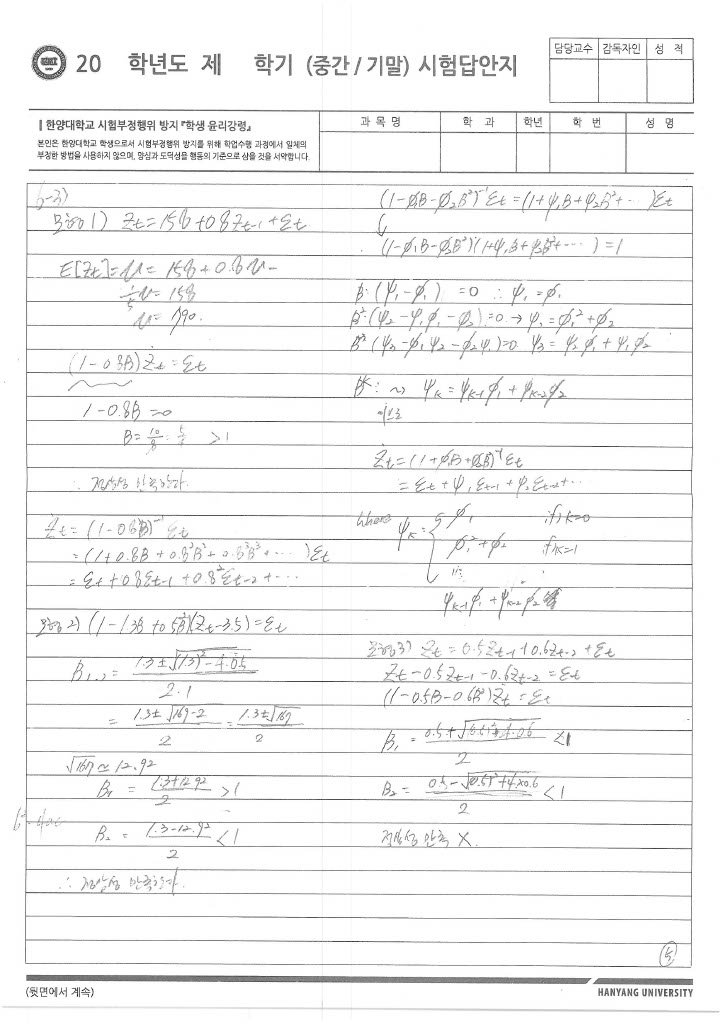 20 학년도 제 학기 (중간 / 기말) 시험답안지
담당교수 감독자인 성 적
한양대학교 시험부정행위 방지 『학생 윤리강령』
본인은 한양대학교 학생으로서 시험부정행위 방지를 위해 학업수행 과정에서 일체의
부정한 방법을 사용하지 않으며, 양심과 도덕성을 행동의 기준으로 삼을 것을 서약합니다.
과 목 명 학 과 학년 학 번 성 명
6-3)
모형1) Zt = 158 + 0.8Zt-1 + εt
E[Zt] = μ = 158 + 0.8μ-
1/5 μ = 158
μ = 790.
(1-0.8B)Żt = εt
1-0.8B = 0
B = 10/8 = 5/4 > 1
∴ 정상성 만족한다.
Żt = (1-0.8B)⁻¹ εt
= (1+0.8B + 0.8²B² + 0.8³B³ + ⋯ )εt
= εt + 0.8εt-1 + 0.8²εt-2 + ⋯
모형2) (1-1.3B+0.5B²)(Zt-3.5) = εt
B1,2 = 1.3±√(1.3)²-4·0.5 / 2·1
= 1.3±√169-2 / 2 = 1.3±√167 / 2
√167 ≃ 12.92
B1 = 1.3+12.92 / 2 > 1
b²-4ac
B2 = 1.3-12.92 / 2 < 1
∴ 정상성 만족한다.
(1-φ1B-φ2B²)⁻¹εt = (1+ψ1B+ψ2B²+⋯ )εt
(1-φ1B-φ2B²)(1+ψ1B+ψ2B²+⋯ ) = 1
B: (ψ1-φ1) = 0 ∴ ψ1 = φ1
B²: (ψ2-ψ1φ1-φ2) = 0 → ψ2 = φ1²+φ2
B³ (ψ3-φ1ψ2-φ2ψ1) = 0 ψ3 = ψ2φ1+ψ1φ2
Bᴷ: ~> ψK = ψK-1φ1 + ψK-2φ2
이므로
Żt = (1+φ1B+φ2B²)⁻¹εt
= εt + ψ1εt-1 + ψ2εt-2 + ⋯
where ψK = { φ1 if K=0
φ1²+φ2 if K=1
ψK-1φ1 + ψK-2φ2
모형3) Zt = 0.5Zt-1 + 0.6Zt-2 + εt
Zt-0.5Zt-1-0.6Zt-2 = εt
(1-0.5B-0.6B²)Zt = εt
B1 = 0.5+√(0.5)²+4·0.6 / 2 < 1
B2 = 0.5-√(0.5)²+4×0.6 / 2 < 1
정상성 만족 X.
5
(뒷면에서 계속)
HANYANG UNIVERSITY